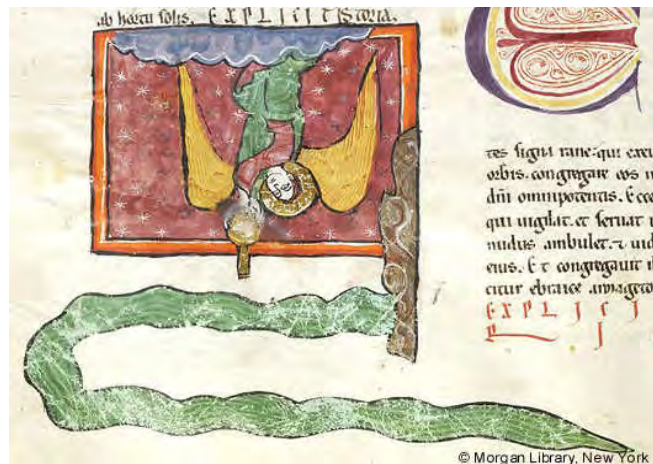 ab hortu solis. EXPLICIT iSToria.
tes signa rane: qui exeu
orbis. congregare eos i
dñi omnipotentis. Ecce
qui uigilat. et seruat
nudus ambulet. ⁊ uid
eius. Et congregauit i
citur ebraice
EXPLICI
© Morgan Library, New York